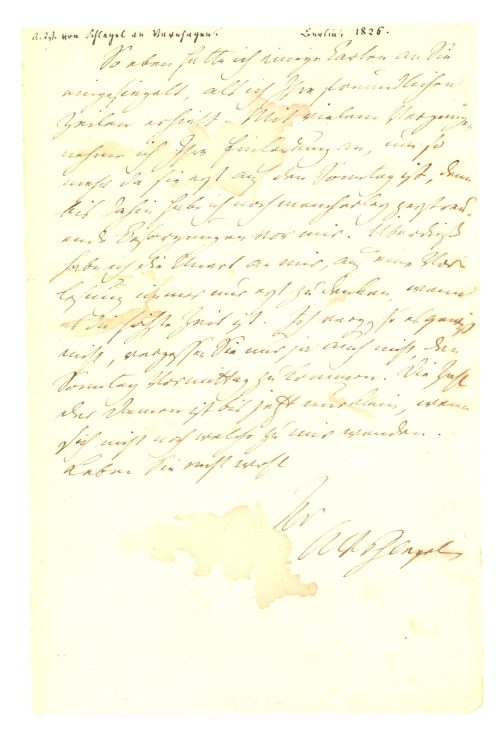 A. W. von Schlegel an Varnhagen. Berlin, 1826.
So eben hatte ich einige Karten an Sie
eingesiegelt, als ich Ihre freundlichen
Zeilen erhielt. Mit vielem Vergnügen
nehme ich Ihre Einladung an, um so
mehr da sie erst auf den Sonntag ist, denn
bis dahin habe ich noch mancherley zerstreu-
ende Besorgungen vor mir. Überdieß
habe ich die Unart an mir, auf eine Vor-
lesung immer nur erst zu denken, wenn
es die höchste Zeit ist. Ich vergesse es gewiß
nicht, vergessen Sie nur ja auch nicht, den
Sonntag Vormittag zu kommen. Die Zahl
der Damen ist bis jetzt nur klein, wenn
sich nicht noch welche zu mir wenden.
Leben Sie recht wohl
Ihr
AWvSchlegel